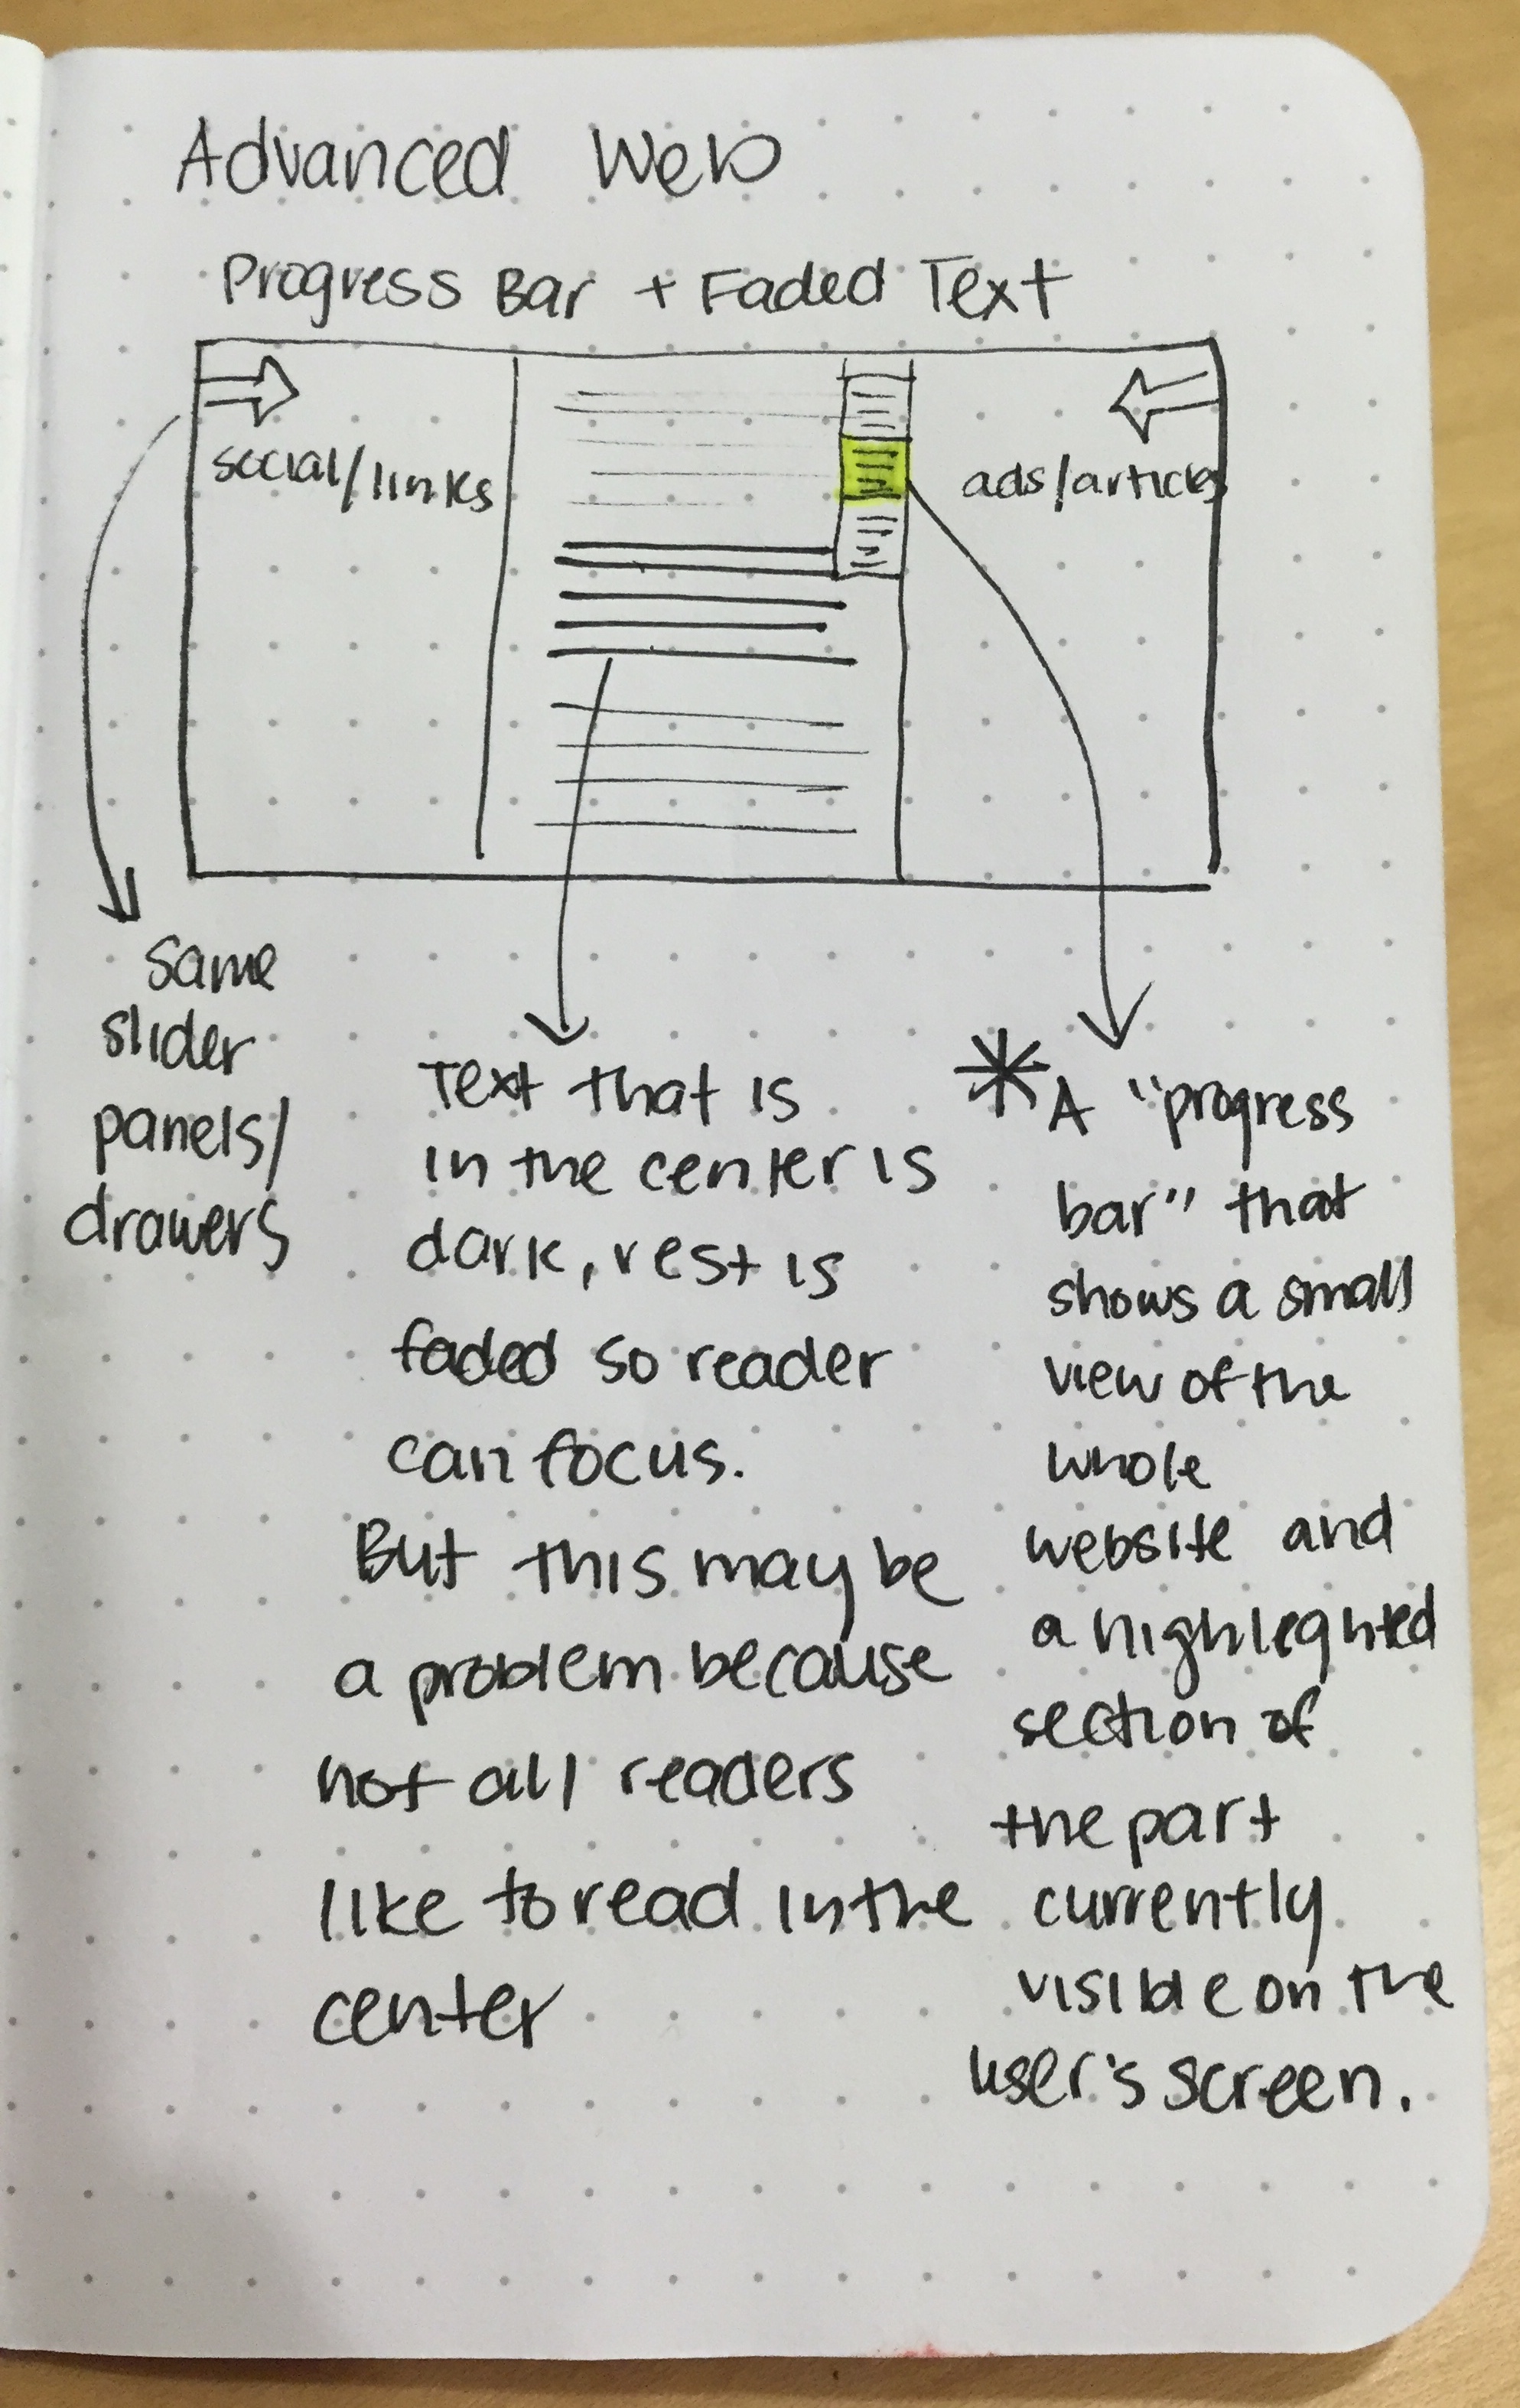 Advanced Web
Progress Bar + Faded Text
social/links
ads/articles
same
slider
panels/
drawers
Text that is
in the center is
dark, rest is
faded so reader
can focus.
But this may be
a problem because
not all readers
like to read in the
center
* A "progress
bar" that
shows a small
view of the
whole
website and
a highleghted
section of
the part
currently
visible on the
user's screen.